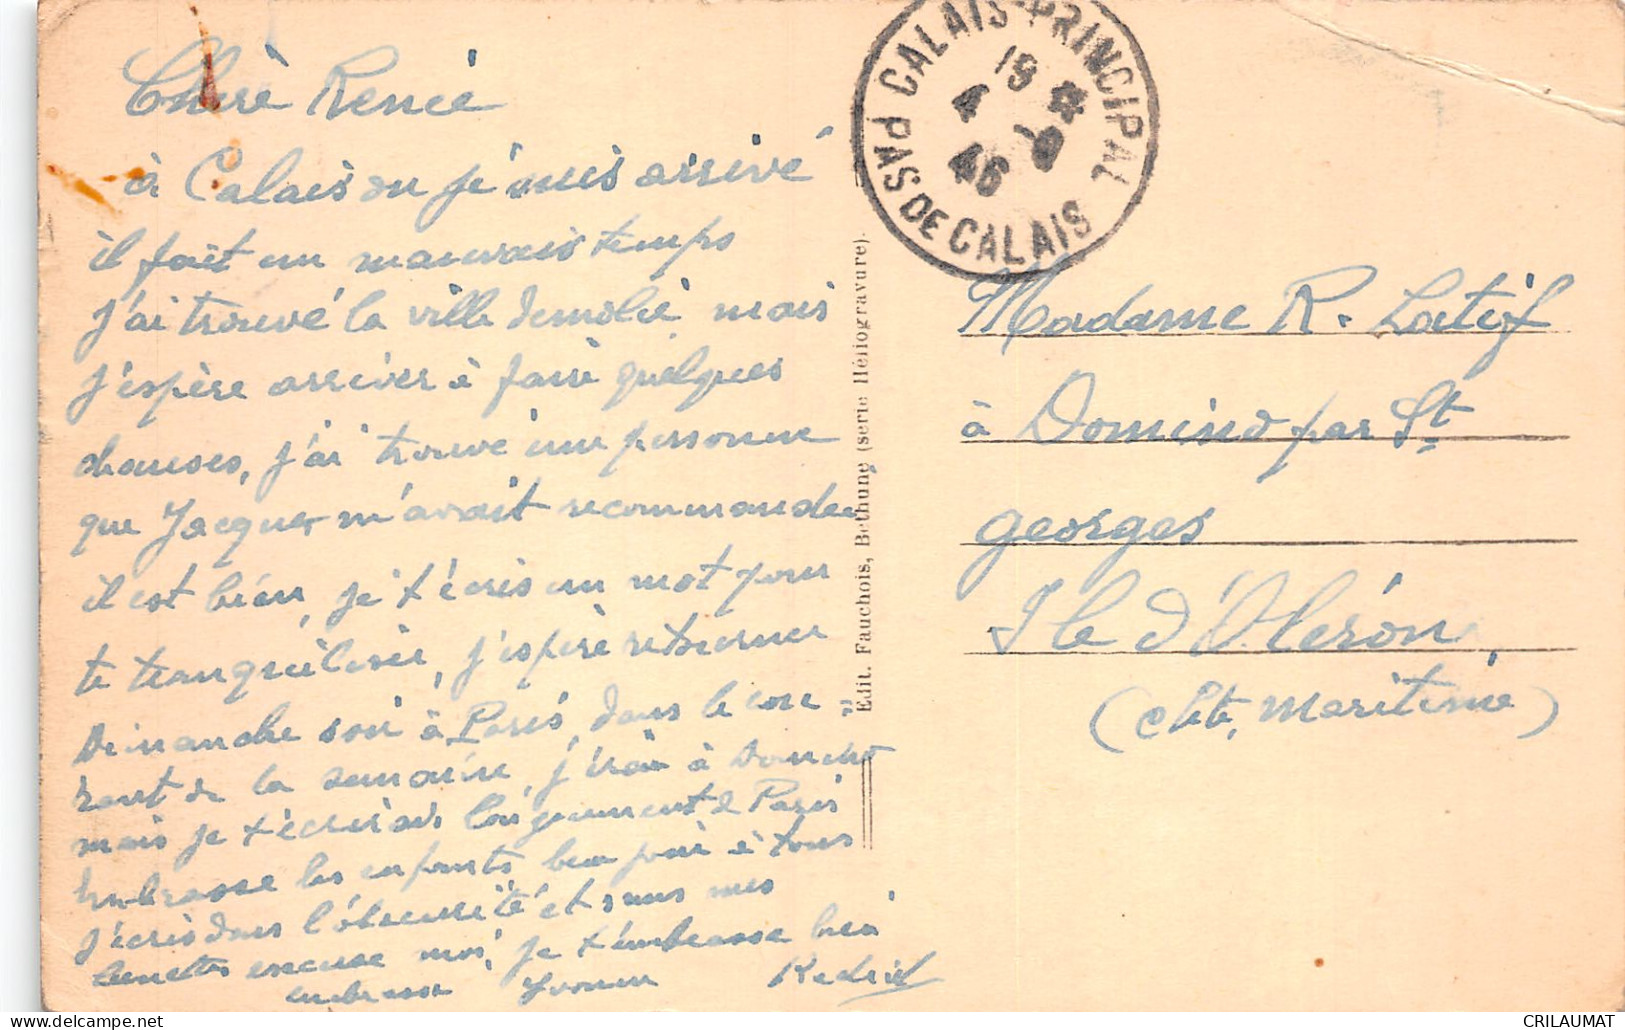 Chère Renée
à Calais ou je suis arrivé
il fait un mauvais temps
j'ai trouvé la ville démolie mais
j'espère arriver à faire quelques
chauses, j'ai trouvé une personne
que Jacques m'avait recommandée
il est bien, je t'écris un mot pour
te tranquiliser, j'espère retourner
Dimanche soir à Paris, dans le cou =
rant de la semaine, j'irai à Domino
mais je t'écrirais longuement de Paris
Embrasse les enfants bien pour à tous
j'écris dans l'obscurité et sans mes
lunettes excuse moi, je t'embrasse bien
embrasse Yvonne
CALAIS-PRINCIPAL
19
4 -9
46
PAS DE CALAIS
Edit. Fauchois, Béthune (série Héliogravure).
Madame R. Latif
à Domino par St
georges
Ile d'Oléron
(Chte, Maritime)
CRILAUMAT